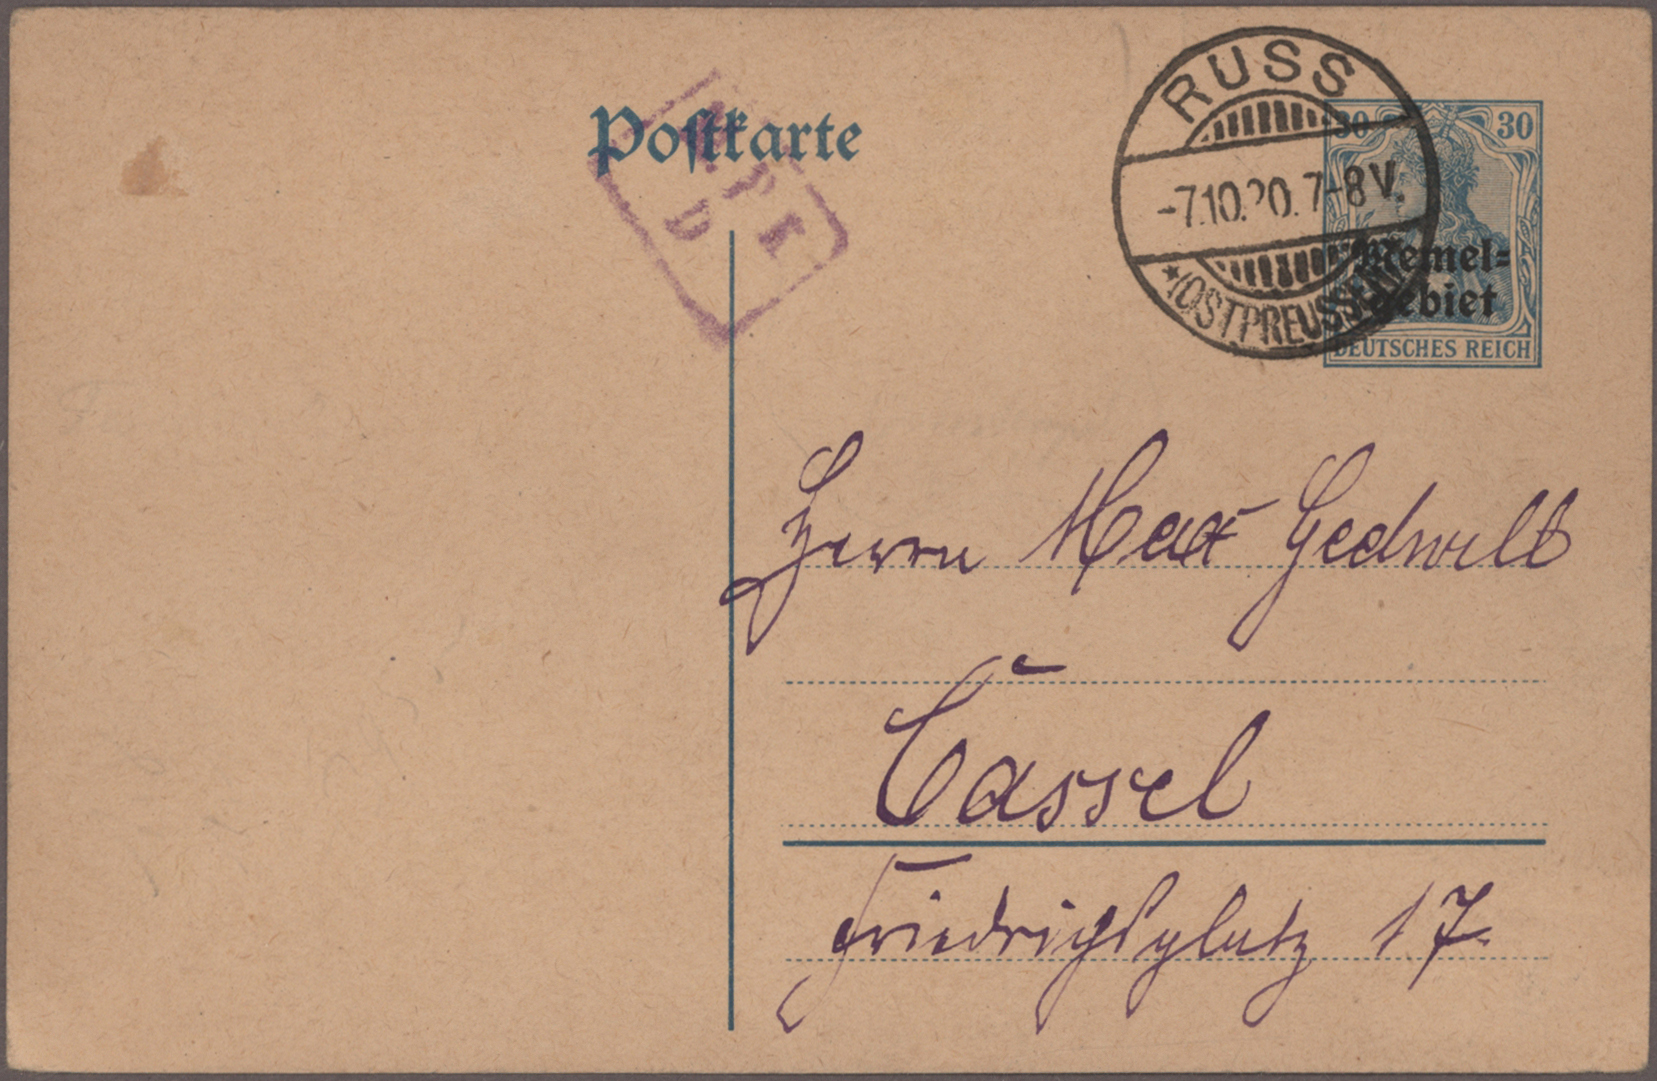 Postkarte
RUSS
-7.10.20. 7-8V.
*(OSTPREUSSEN)
30 30
Memel=
gebiet
DEUTSCHES REICH
Herrn Max Gedwill
Cassel
Friedrichsplatz 17